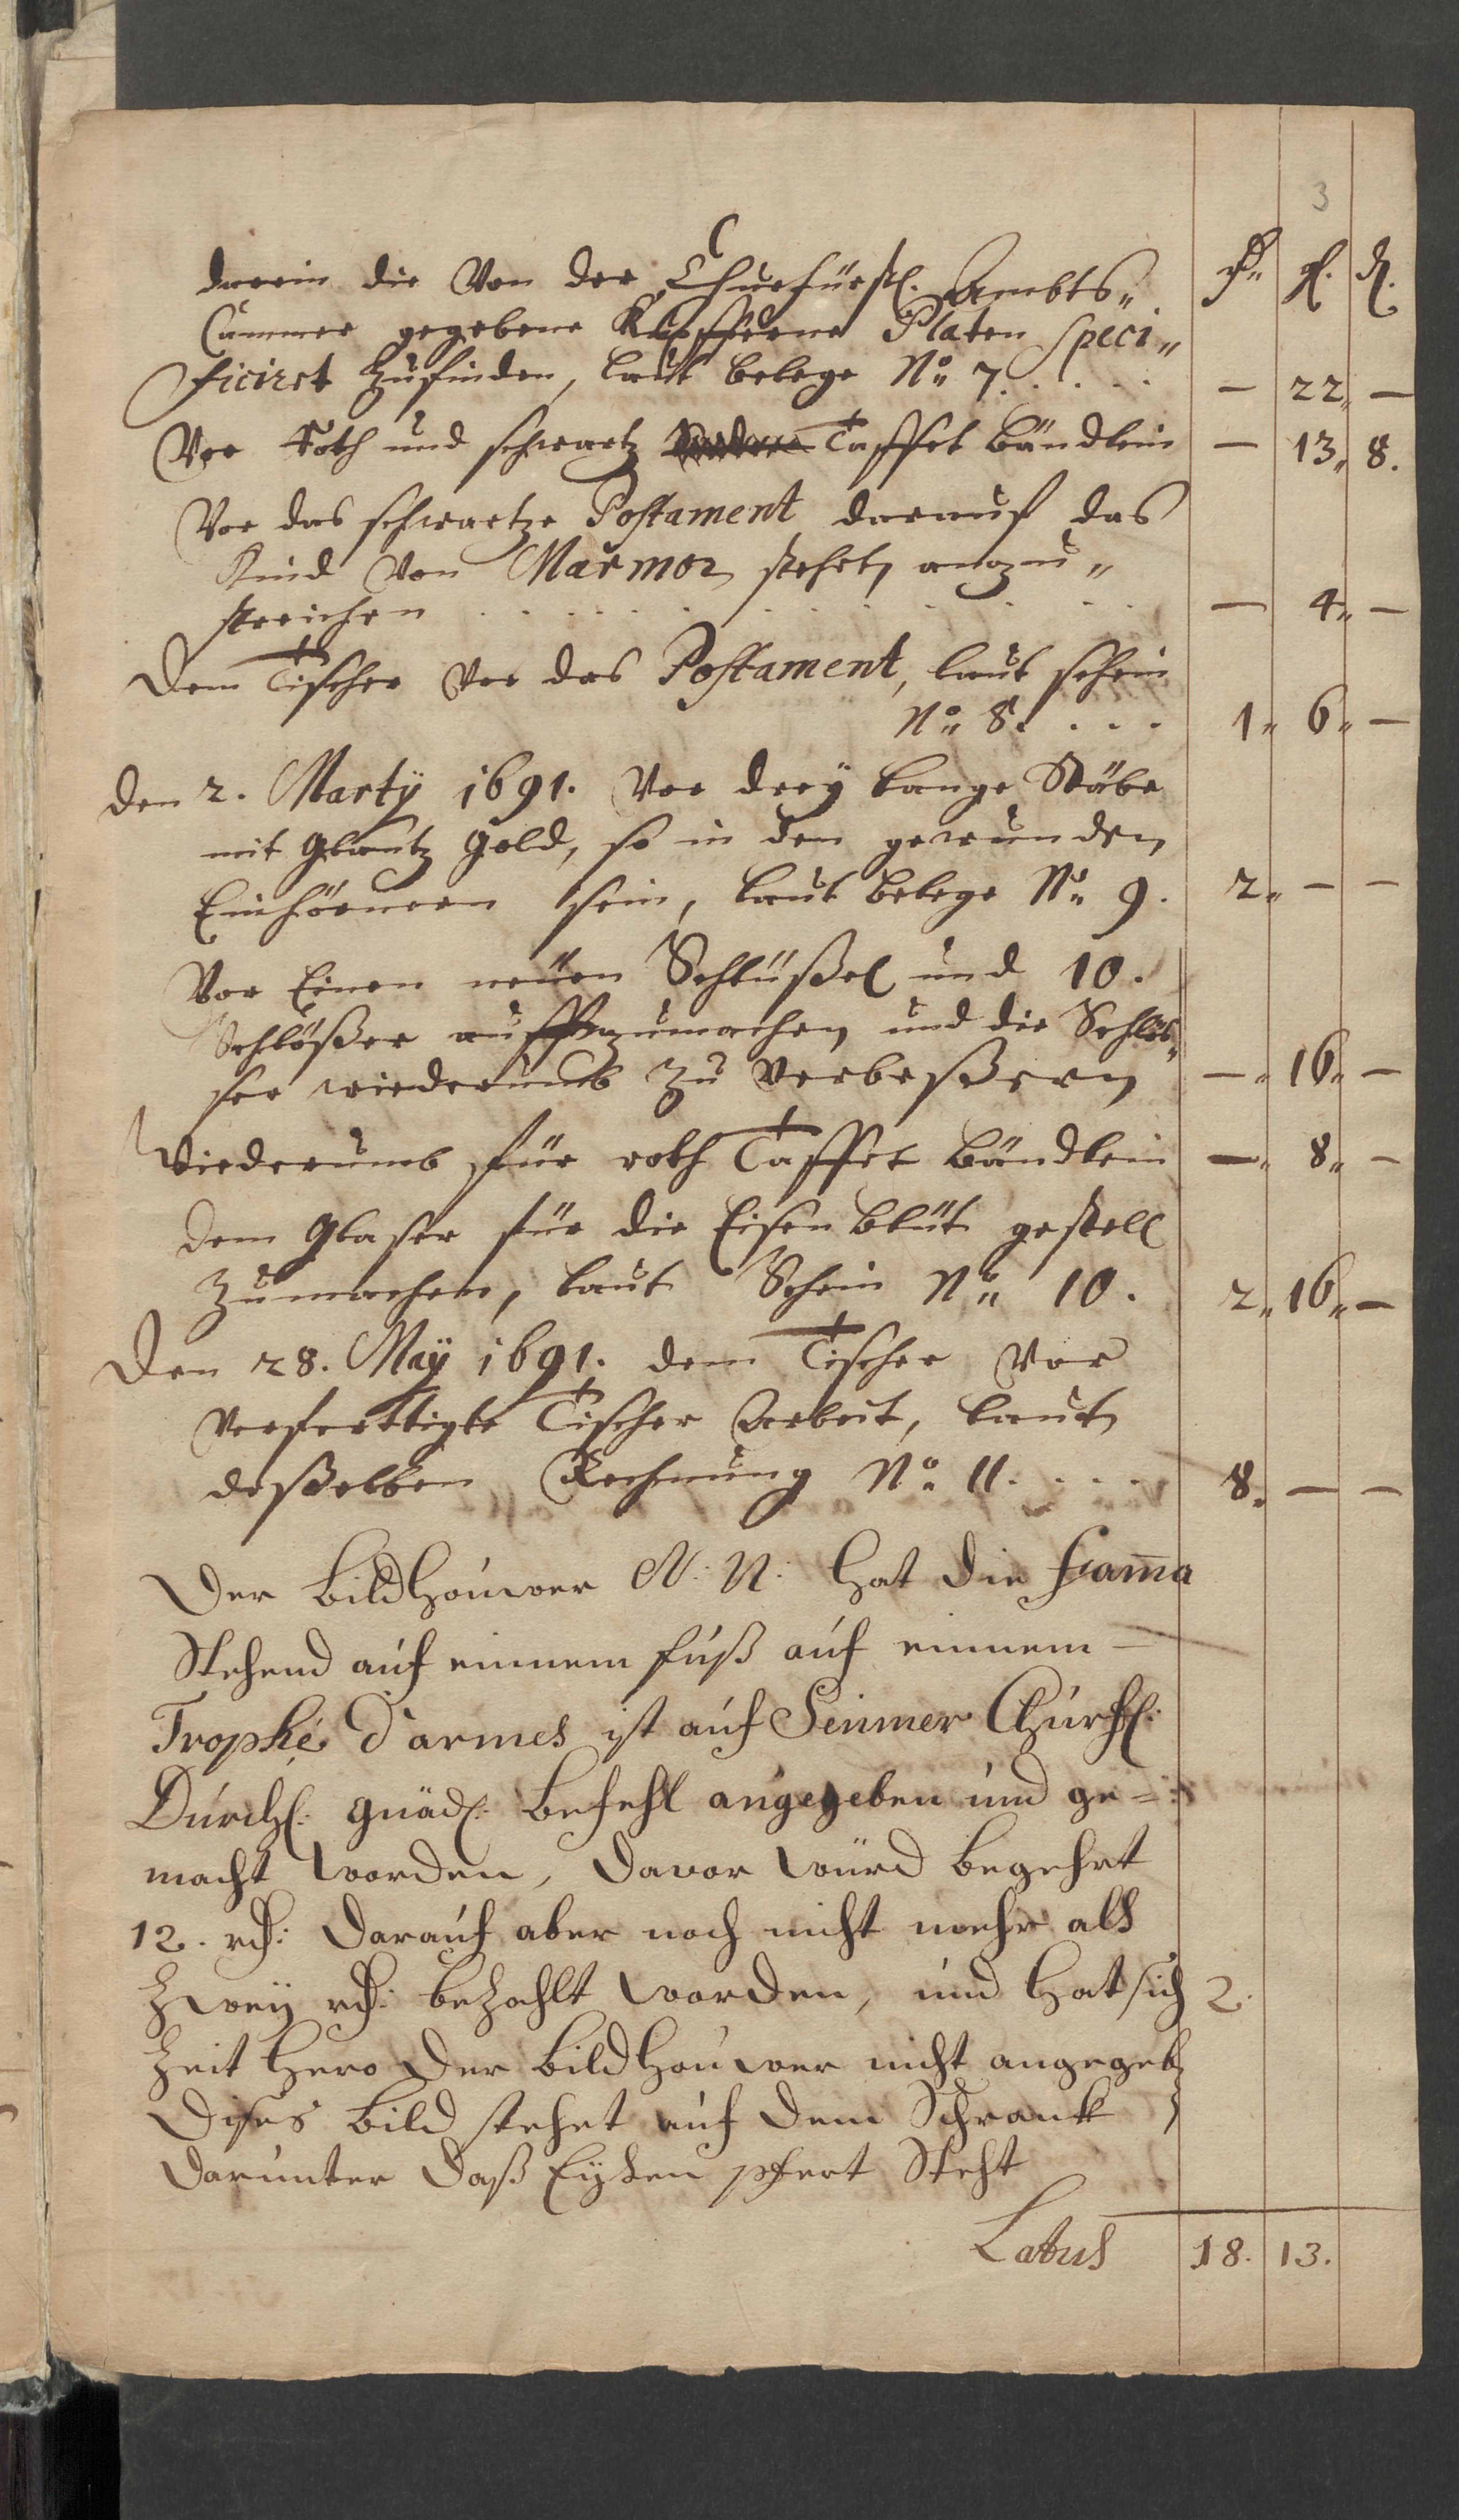 3
darein die Von der Churfürstl. Ambts„ | rthl„ | gl. | d.
Cammer gegebene Kupfferne Platen Speci„
ficiret Zufinden, laut belege No„ 7. . . . . | — | 22„ | —
Vor Roth und schwartz Taffet bändlein | — | 13„ | 8.
Vor das schwartze Postament darauf das
Kind von Marmor stehet, anzu„
streichen . . . . . . . . . . | — | 4„ | —
Dem Tischer Vor das Postament, laut schein
No„ 8. . . . | 1„ | 6„ | —
den 2. Martÿ 1691. Vor dreÿ lange Stäbe
mit Glantz Gold, so in den gewunden
Einhörnern sein, laut belege No„ 9. | 2„ | — | —
Vor Einen neüen Schlüßel und 10.
Schlößer auffzumachen und die Schlös„
ser wiederumb Zu verbeßern | —„ | 16„ | —
Wiederumb für roth Taffet bändlein | —„ | 8„ | —
dem Glaser für die Eisen blüt gestell
Zumachen, laut Schein No„ 10. | 2„ | 16„ | —
Den 28. Maÿ 1691. dem Tischer Vor
verferttigte Tischer Arbeit, laut
deßelben Rechnung No. 11. . . . | 8. | — | —
Der bildhouwer N: N: hat die fam̄a
Stehend auf einnem fuß auf einnem —
Trophé d'armes ist auf Seinner Churfl:
Durchl: gnäd: befehl angegeben und ge=
macht worden, davor würd begehrt
12. rth: darauf aber noch nicht mehr als
Zweÿ rth: beZahlt worden, und hat sich | 2.
Zeit hero der bildhouwer nicht angegeb
Dises bild stehet auf dem Schrank
darunter daß Eÿsen pfert Steht
Latus | 18. | 13.